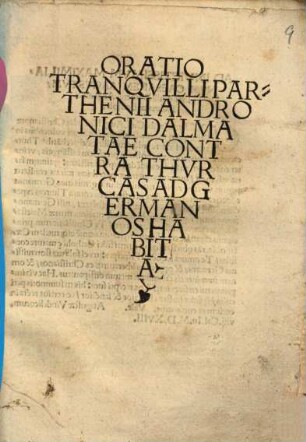 9
ORATIO
TRANQVILLI PAR-
THENII ANDRO
NICI DALMA
TAE CONT
RA THVR
CAS AD G
ERMAN
OS HA
BIT
A